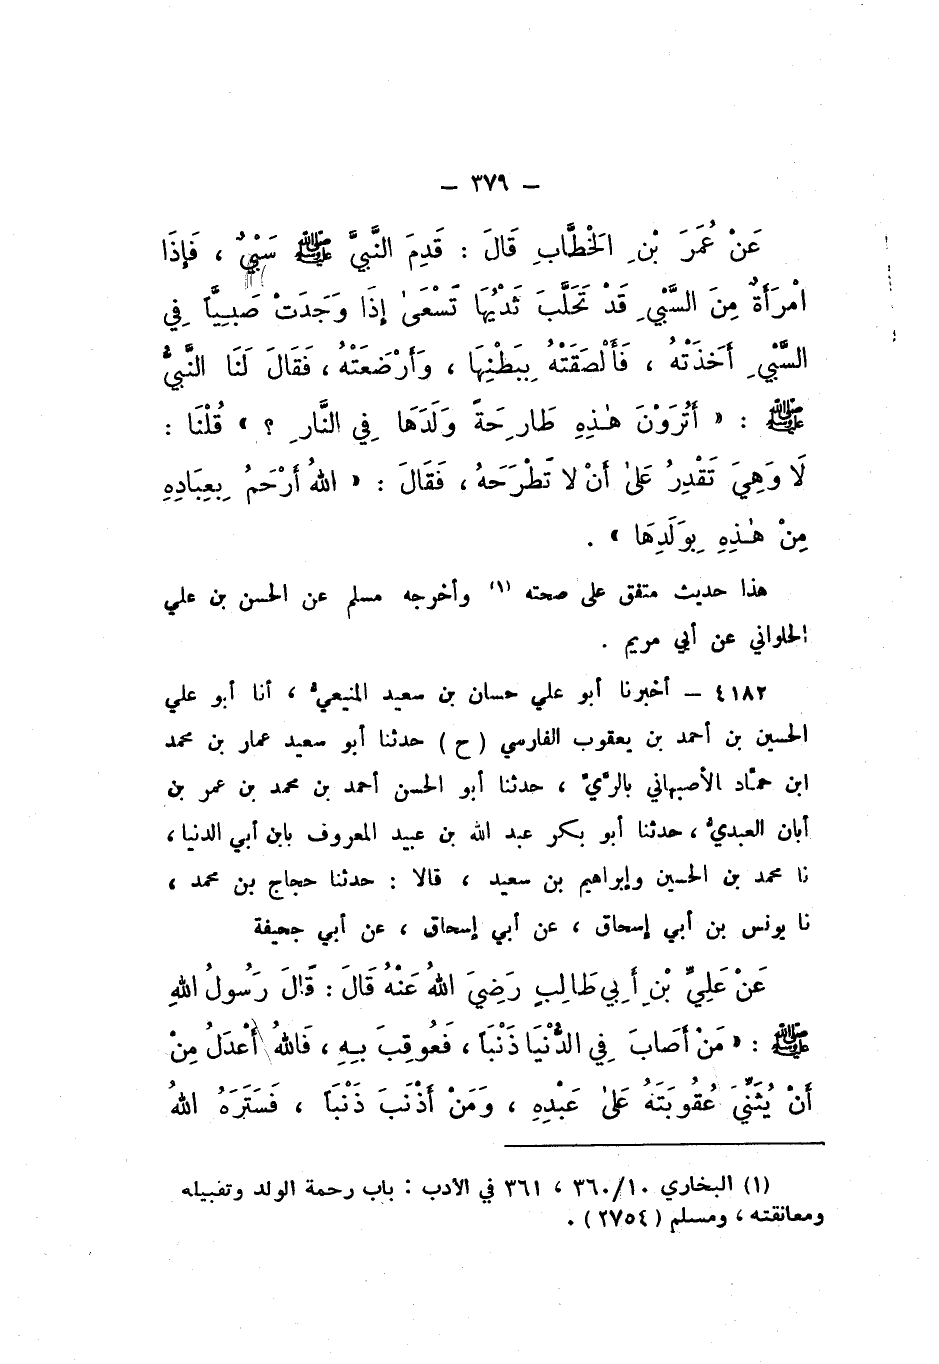 – ٣٧٩ –
عَنْ عُمَرَ بْنِ الْخَطَّابِ قَالَ : قَدِمَ النَّبِيَّ ﷺ سَبْيٌ ، فَإِذَا
امْرَأَةٌ مِنَ السَّبْيِ قَدْ تَحَلَّبَ ثَدْيُهَا تَسْعَىٰ إِذَا وَجَدَتْ صَبِيًّا فِي
السَّبْيِ أَخَذَتْهُ ، فَأَلْصَقَتْهُ بِبَطْنِهَا ، وَأَرْضَعَتْهُ ، فَقَالَ لَنَا النَّبِيُّ
ﷺ : « أَتُرَوْنَ هٰذِهِ طَارِحَةً وَلَدَهَا فِي النَّارِ ؟ » قُلْنَا :
لَا وَهِيَ تَقْدِرُ عَلىٰ أَنْ لا تَطْرَحَهُ ، فَقَالَ : « اللهُ أَرْحَمُ بِعِبَادِهِ
مِنْ هٰذِهِ بِوَلَدِهَا » .
هذا حديث متفق على صحته (١) وأخرجه مسلم عن الحسن بن علي
الحلواني عن أبي مريم .
٤١٨٢ – أخبرنا أبو علي حسان بن سعيد المنيعيُّ ، أنا أبو علي
الحسين بن أحمد بن يعقوب الفارسي ( ح ) حدثنا أبو سعيد عمار بن محمد
ابن حمّاد الأصبهاني بالرّيِّ ، حدثنا أبو الحسن أحمد بن محمد بن عمر بن
أبان العبديُّ ، حدثنا أبو بكر عبد الله بن عبيد المعروف بابن أبي الدنيا ،
نا محمد بن الحسين وإبراهيم بن سعيد ، قالا : حدثنا حجاج بن محمد ،
نا يونس بن أبي إسحاق ، عن أبي إسحاق ، عن أبي جحيفة
عَنْ عَلِيِّ بْنِ أَبِي طَالِبٍ رَضِيَ اللهُ عَنْهُ قَالَ : قَالَ رَسُولُ اللهِ
ﷺ : « مَنْ أَصَابَ فِي الدُّنْيَا ذَنْبًا ، فَعُوقِبَ بِهِ ، فَاللهُ أَعْدَلُ مِنْ
أَنْ يُثَنِّيَ عُقُوبَتَهُ عَلىٰ عَبْدِهِ ، وَمَنْ أَذْنَبَ ذَنْبًا ، فَسَتَرَهُ اللهُ
(١) البخاري ٣٦٠/١٠ ، ٣٦١ في الأدب : باب رحمة الولد وتقبيله
ومعانقته ، ومسلم ( ٢٧٥٤ ) .